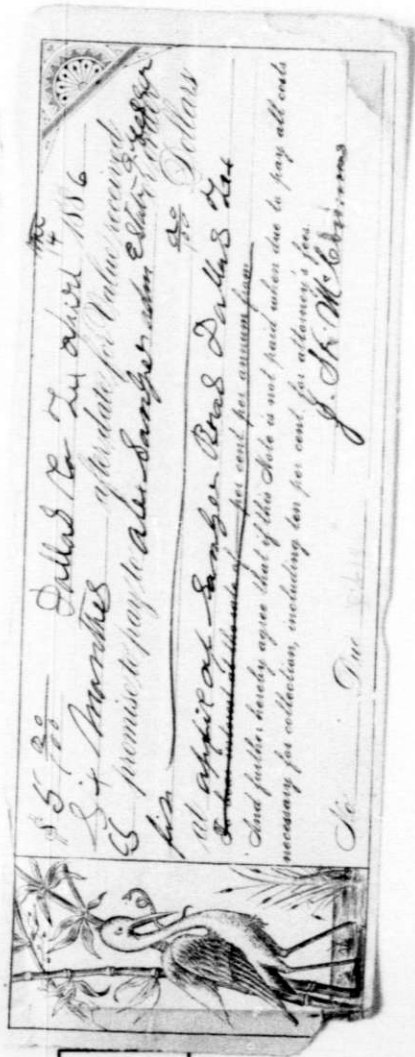 $5 00/100 Dallas Co Tex April 14th 1886
Six Months after date for Value received
promise to pay to Alex Sanger adm Estate
five 00/100 Dollars
at office of Sanger Bros Dallas Tex
per cent per annum from
And further hereby agree that if this Note is not paid when due to pay all costs
necessary for collection, including ten per cent. for attorney's fees.
No. Due J. H. McCommas